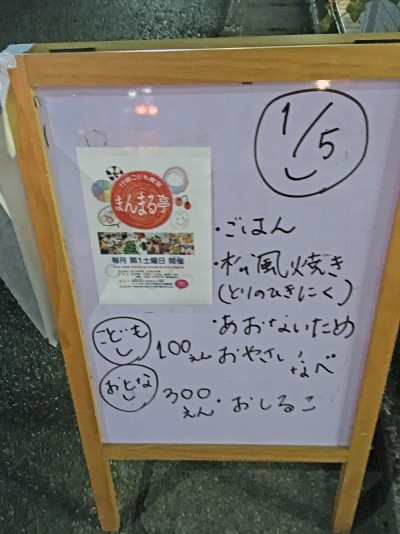 1/5
行徳こども食堂
まんまる亭
毎月 第1土曜日 開催
・ごはん
・松風焼き
(とりのひきにく)
・あおないため
おやさいなべ
・おしるこ
こども
100えん
おとな
300えん